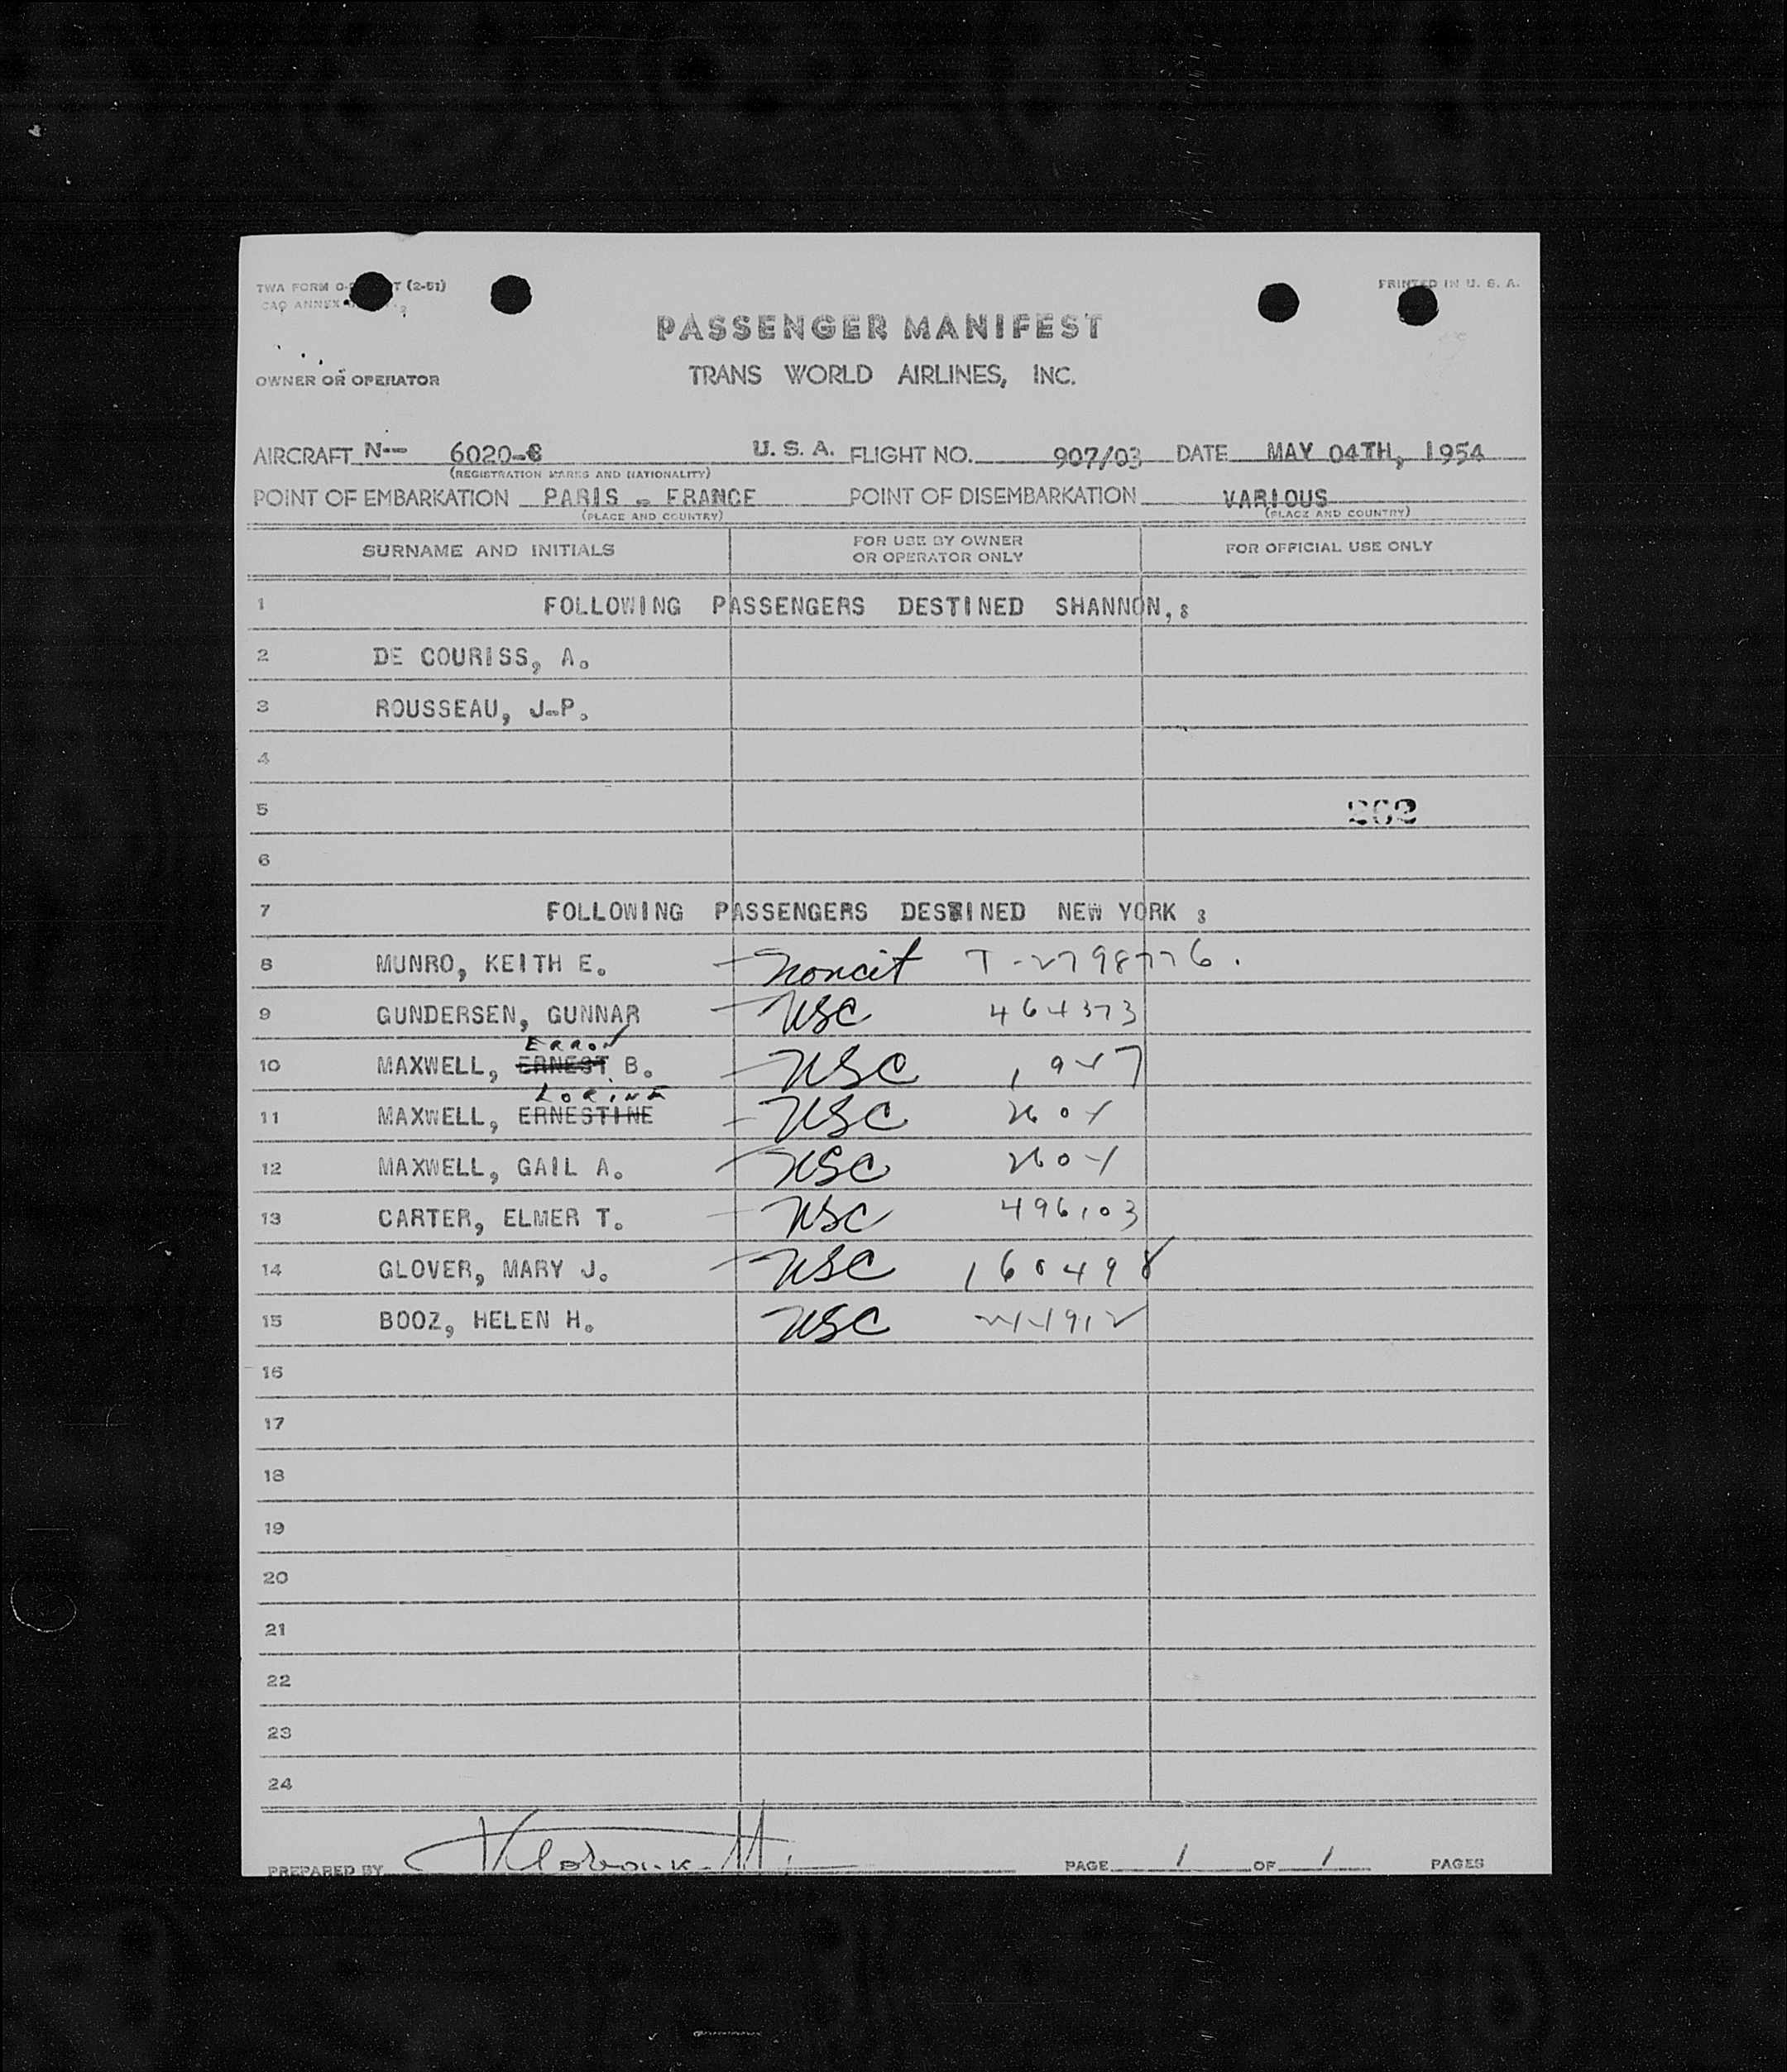 TWA FORM O- T (2-51) PRINTED IN U. S. A.
CAO ANNEX
PASSENGER MANIFEST
OWNER OR OPERATOR TRANS WORLD AIRLINES, INC.
AIRCRAFT N-- 6020-C U. S. A. FLIGHT NO. 907/03 DATE MAY 04TH, 1954
(REGISTRATION MARKS AND NATIONALITY)
POINT OF EMBARKATION PARIS - FRANCE POINT OF DISEMBARKATION VARIOUS
(PLACE AND COUNTRY) (PLACE AND COUNTRY)
SURNAME AND INITIALS FOR USE BY OWNER OR OPERATOR ONLY FOR OFFICIAL USE ONLY
1 FOLLOWING PASSENGERS DESTINED SHANNON,:
2 DE COURISS, A.
3 ROUSSEAU, J-P.
4
5 262
6
7 FOLLOWING PASSENGERS DESTINED NEW YORK :
8 MUNRO, KEITH E. - noncit T-2798776.
9 GUNDERSEN, GUNNAR - USC 464373
ERROL
10 MAXWELL, ERNEST B. - USC 1947
LORINE
11 MAXWELL, ERNESTINE - USC 2604
12 MAXWELL, GAIL A. - USC 2604
13 CARTER, ELMER T. - USC 496103
14 GLOVER, MARY J. - USC 160498
15 BOOZ, HELEN H. USC
16
17
18
19
20
21
22
23
24
PREPARED BY PAGE 1 OF 1 PAGES